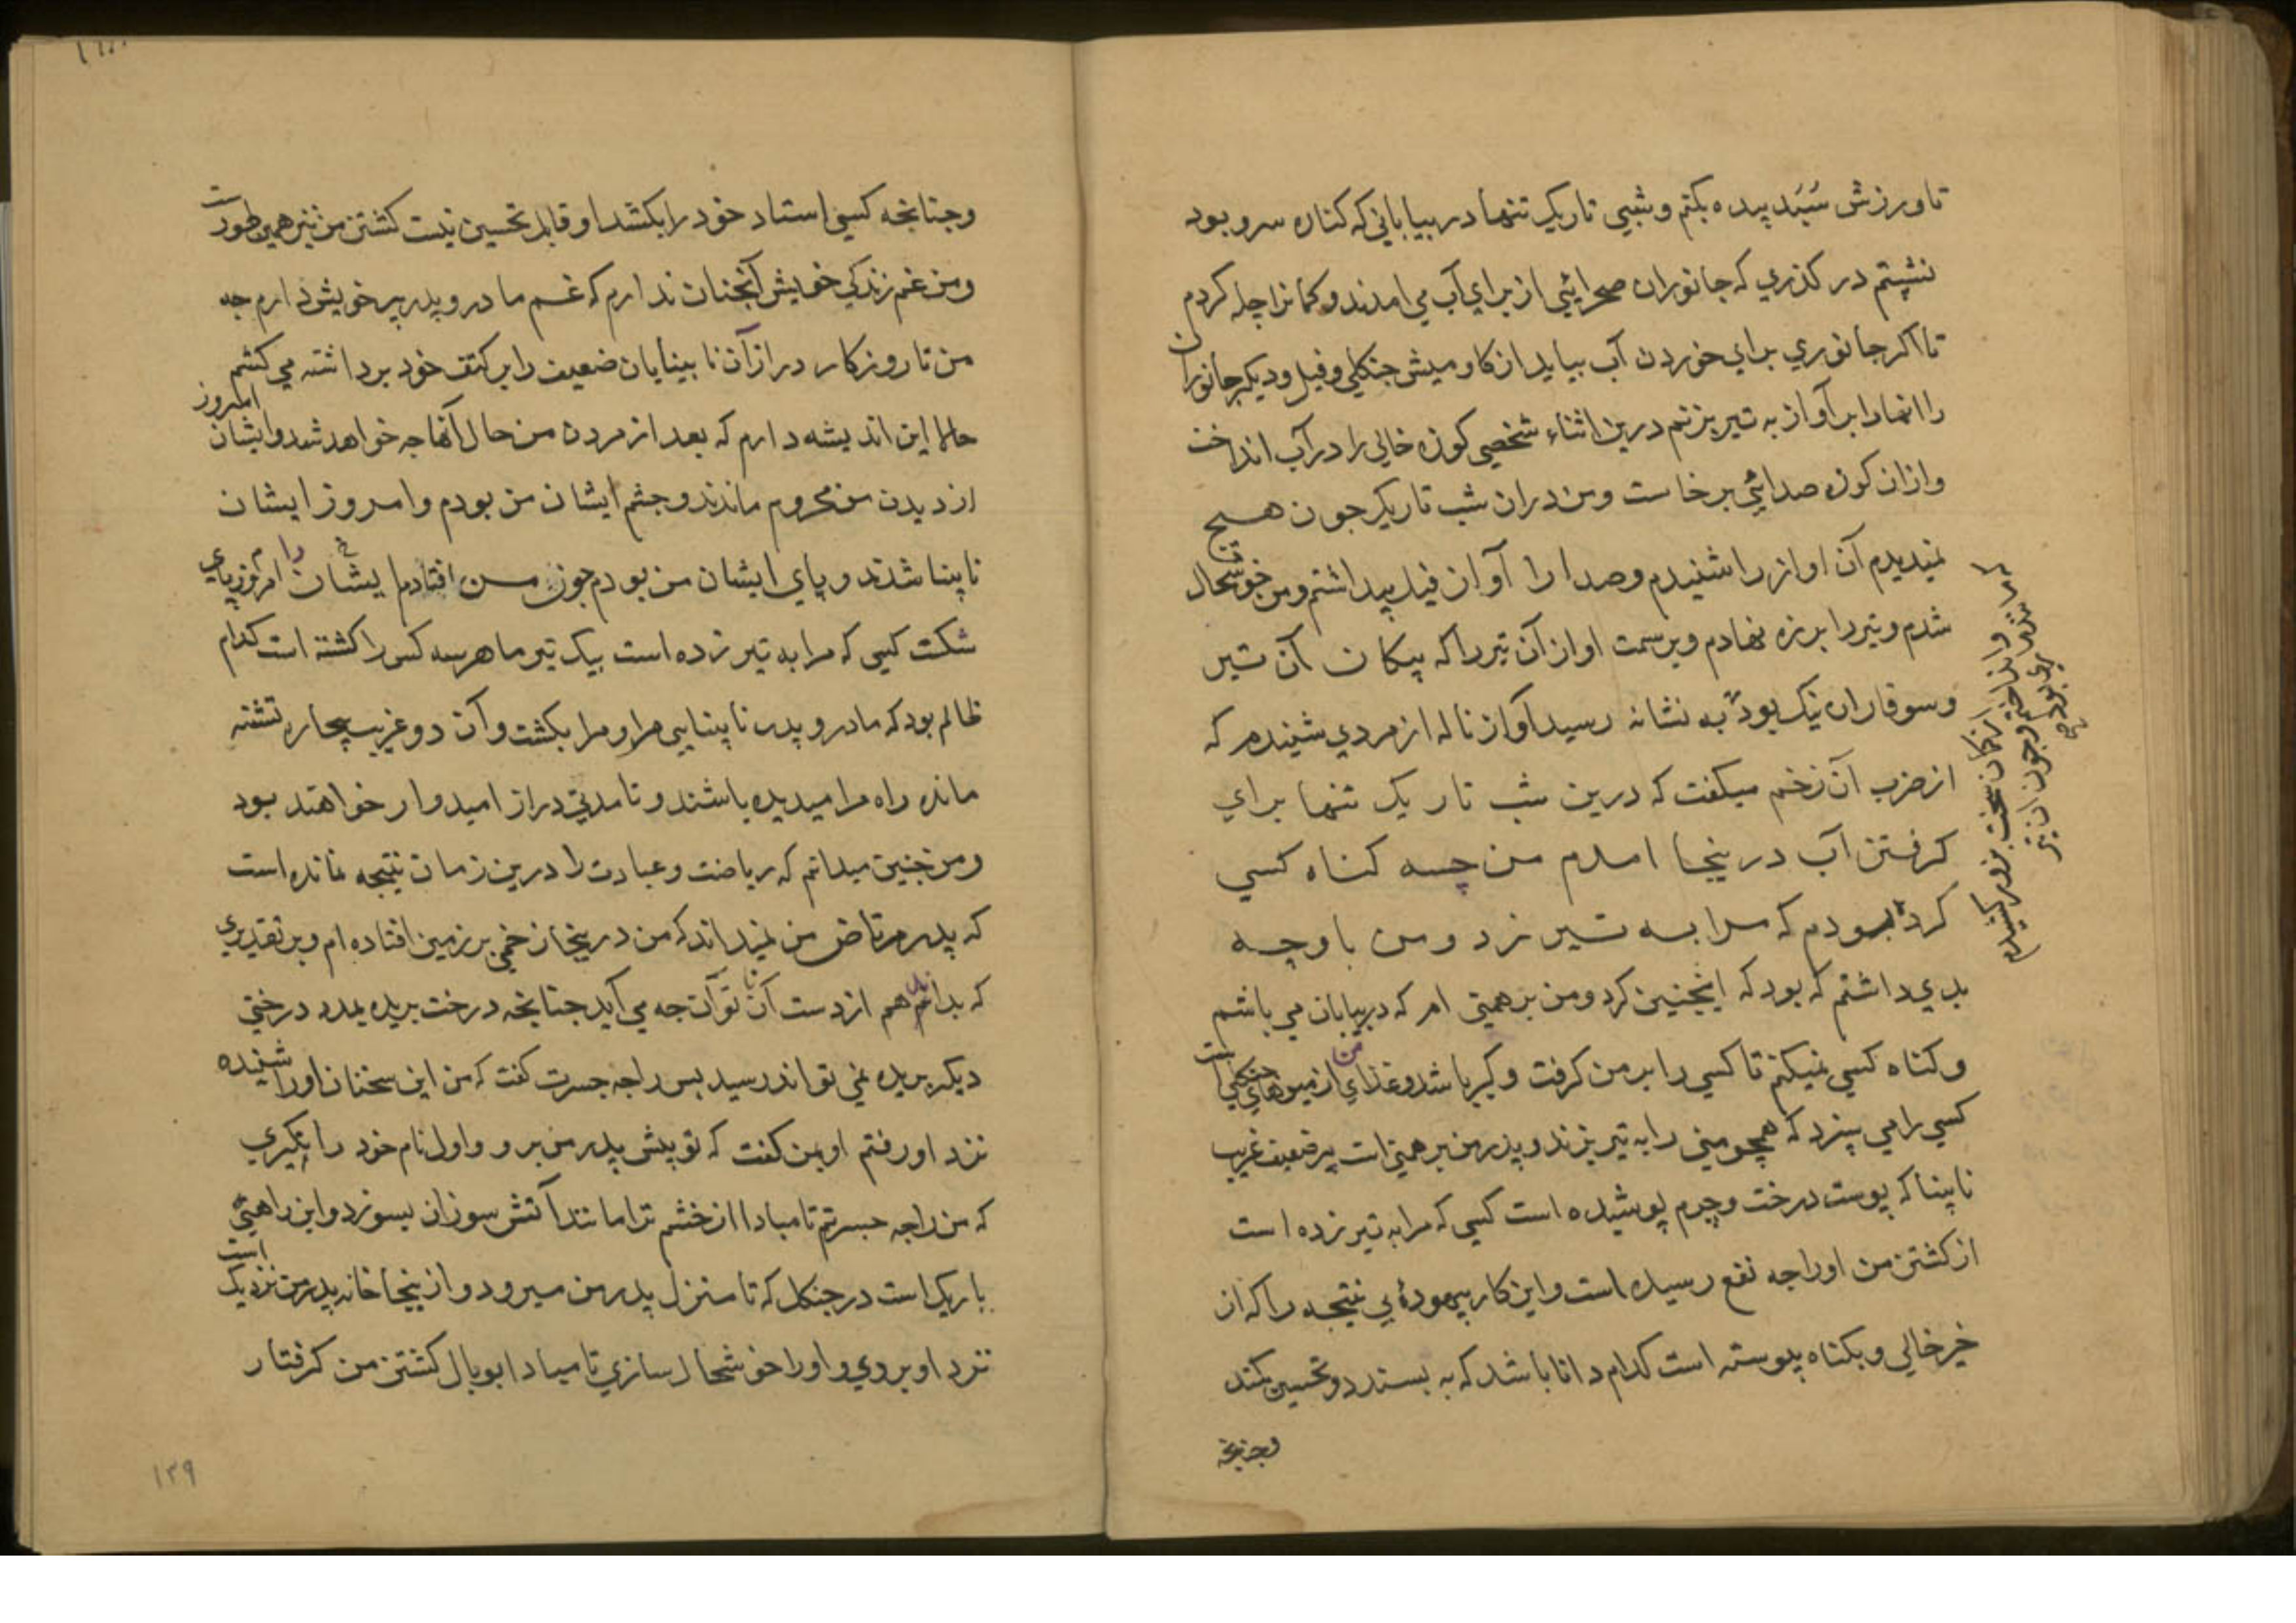 تا ورزش سَبَد پیده بکنم و شبی تاریک تنها در بیابانی که کناره سرو بود
نشستم در کذری که جانوران صحرایئی از برای آب می امدند و کمانرا چله کردم
تا اکر جانوری برای خوردن آب بیاید از کاومیش جنکلی و فیل و دیکر جانوران
را انها را بر آواز به تیر بزنم درین اثناء شخصی کوزه خالی را در آب انداخت
و ازان کوزه صدایئی برخاست و من دران شب تاریک جون هیچ
نمیدیدم آن اواز را شنیدم و صدا را آواز فیل پیداشتم و من خوشحال
شدم و تیر را بر زه نهادم و بر سمت اواز آن تیر را که پیکان آن تیر
و سوفار ان نیک بود به نشانه رسید آواز ناله از مردی شنیدم که
از ضرب آن زخم میکفت که درین شب تاریک تنها برای
کرفتن آب درینجا امدم من چسه کناه کسی
کرده بودم که مرا به تیر زد و من با و چه
بدی داشتم که بود که اینجنین کرد و من برهمنی ام که در بیابان می باشم
و کناه کسی نمیکنم تا کسی را بر من کرفت و کیر باشد و غذای من از میوهای جنکلی است
کسی را می سزد که همچو منی را به تیر بزند و پدر من برهمنی است پیر ضعیف غریب
نابینا که پوست درخت و چرم پوشیده است کسی که مرا به تیر زده است
از کشتن من اورا جه نفع رسیده است و این کار بیهودهٔ بی نتیجه را که از
خیر خالی و بکناه پیوسته است کدام دانا باشد که به بسندد و تحسین کند
وجنانجه
کمان سخت بزور کشیدم
و جنانجه کسی استاد خود را بکشد او قابل تحسین نیست کشتن من نیز همین طورست
و من غم زندکی خویش آنجنان ندارم که غم مادر و پدر پیر خویش دارم جه
من تا روزکار دراز آن نابینایان ضعیف را بر کتف خود برداشته می کشم
حالا این اندیشه دارم که بعد از مردن من حال آنها جه خواهد شد و ایشان امروز
از دیدن من محروم ماندند و جشم ایشان من بودم و امروز ایشان
نابینا شدند و پای ایشان من بودم جون من افتادم ایشان را امروز پای
شکست کسی که مرا به تیر زده است بیک تیر ما هر سه کس را کشته است کدام
ظالم بود که مادر و پدر نابینایی مرا و مرا بکشت و آن دو غریب بیچاره تشنه
مانده راه مرا میدیده باشند و تا مدتی دراز امیدوار خواهند بود
و من جنین میدانم که ریاضت و عبادت را درین زمان نتیجه نمانده است
که پدر مرتاض من نمیداند که من درینجا زخمی بر زمین افتاده ام و بر تقدیری
که بداند هم از دست آن ناتوآن جه می آید جنانجه درخت بریده بمدد درختی
دیکر بریده نمی تواند رسید بس راجه جسرت کفت که من این سخنان اورا شنیده
نزد او رفتم او بمن کفت که تو پیش پدر من برو و اول نام خود را بکیری
که من راجه جسرتم تا مبادا از خشم ترا مانند آتش سوزان بسوزد و این راهئی
باریک است در جنکل که تا منزل پدر من میرود و از ینجا خانه پدر من نزدیک است
نزد او بروی و اورا خوشحال سازی تا مبادا بوبال کشتن من کرفتار
۱۳۹